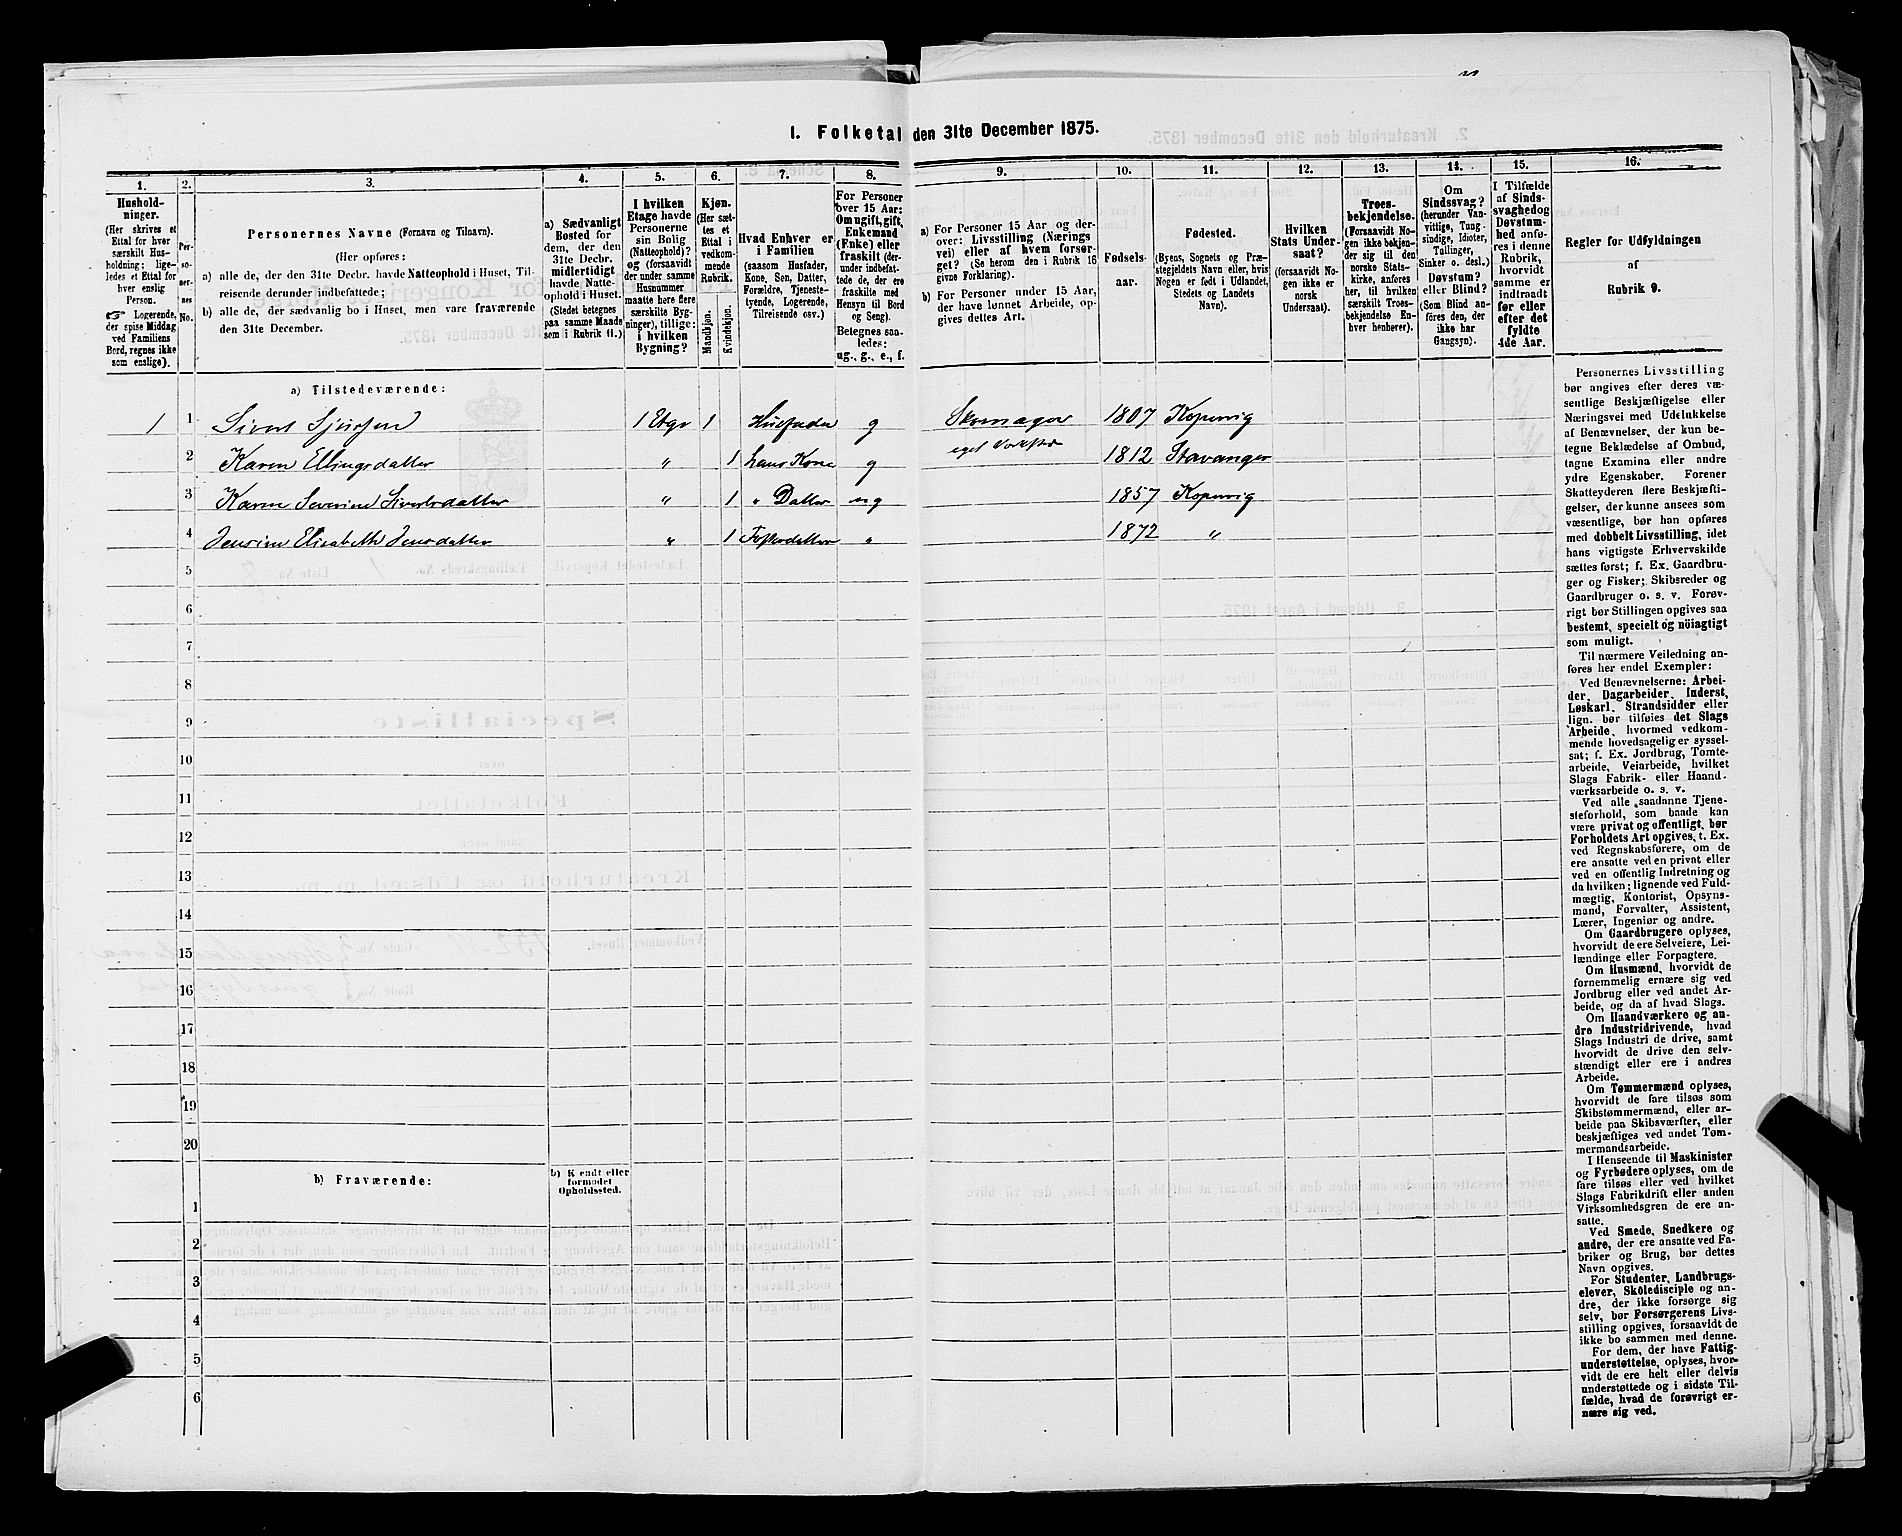 1. Folketal den 31te December 1875.
1. 2. 3. 4. 5. 6. 7. 8. 9. 10. 11. 12. 13. 14. 15. 16.
Hushold-
ninger.
(Her skrives et
Ettal for hver
særskilt Hus-
holdning; lige-
ledes et Ettal for
hver enslig
Person.
☞ Logerende,
der spise Middag
ved Familiens
Bord, regnes ikke
som enslige).
Per-
so-
ner-
nes
No.
Personernes Navne (Fornavn og Tilnavn).
(Her opføres:
a) alle de, der den 31te Decbr. havde Natteophold i Huset, Til-
reisende derunder indbefattede;
b) alle de, der sædvanlig bo i Huset, men vare fraværende
den 31te December.
a) Sædvanligt
Bosted for
dem, der den
31te Decbr.
midlertidigt
havde Natte-
ophold i Huset.
(Stedet betegnes
paa samme Maade
som i Rubrik 11.)
I hvilken
Etage havde
Personerne
sin Bolig
(Natteophold)?
og (forsaavidt
der under samme
Husnummer
maatte høre flere
særskilte Byg-
ninger), tillige:
i hvilken
Bygning?
Kjøn.
(Her sæt-
tes et
Ettal i
vedkom-
mende
Rubrik.
Mandkjøn.
Kvindekjøn.
Hvad Enhver er
i Familien
(saasom Husfader,
Kone, Søn, Datter,
Forældre, Tjeneste-
tyende, Logerende,
Tilreisende osv.)
For Personer
over 15 Aar:
Om ugift, gift,
Enkemand
(Enke) eller
fraskilt (der-
under indbefat-
tede de, der ere
fraskilte med
Hensyn til Bord
og Seng).
Betegnes saa-
ledes:
ug., g., e., f.
a) For Personer 15 Aar og der-
over: Livsstilling (Nærings
vei) eller af hvem forsør-
get? (Se herom den i Rubrik 16
givne Forklaring).
b) For Personer under 15 Aar,
der have lønnet Arbeide, op-
gives dettes Art.
Fødsels-
aar.
Fødested.
(Byens, Sognets og Præ-
stegjeldets Navn eller, hvis
Nogen er født i Udlandet,
Stedets og Landets
Navn).
Hvilken
Stats Under-
saat?
(forsaavidt No-
gen ikke er
norsk
Undersaat).
Troes-
bekjendelse.
(Forsaavidt No-
gen ikke bekjen-
der sig til den
norske Stats-
kirke, anføres
her, til hvilken
særskilt Troes-
bekjendelse En-
hver henhører).
Om
Sindssvag?
(herunder Van-
vittige, Tung-
sindige, Idioter,
Tullinger,
Sinker o. desl.)
Døvstum?
eller Blind?
(Som Blind an-
føres den, der
ikke har
Gangsyn).
I Tilfælde
af Sinds-
svaghed og
Døvstum-
hed anfø-
res i denne
Rubrik,
hvorvidt
samme er
indtraadt
før eller
efter det
fyldte
4de Aar.
Regler for Udfyldningen
af
Rubrik 9.
a) Tilstedeværende:
1 1 Sivert Sjursen 1 Etge 1 Husfader g Skomager 1807 Kopervig
eget Værksted
2 Karen Ellingsdatter " 1 hans Kone g 1812 Stavanger
3 Karen Severine Sivertsdatter " 1 " Datter ug 1857 Kopervig
4 Jensine Elisabeth Jensdatter " 1 Fosterdatter " 1872 "
5
6
7
8
9
10
11
12
13
14
15
16
17
18
19
20
b) Fraværende:
b) Kjendt eller
formodet
Opholdssted.
1
2
3
4
5
6
Personernes Livsstilling
bør angives efter deres væ-
sentlige Beskjæftigelse eller
Næringsvei med Udelukkelse
af Benævnelser, der kun be-
tegne Beklædelse af Ombud,
tagne Examina eller andre
ydre Egenskaber. Forener
Skatteyderen flere Beskjæfti-
gelser, der kunne ansees som
væsentlige, bør han opføres
med dobbelt Livsstilling, idet
hans vigtigste Erhvervskilde
sættes først; f. Ex. Gaardbru-
ger og Fisker; Skibsreder og
Gaardbruger o. s. v. Forøv-
rigt bør Stillingen opgives saa
bestemt, specielt og nöiagtigt
som muligt.
Til nærmere Veiledning an-
føres her endel Exempler:
Ved Benævnelserne: Arbei-
der, Dagarbeider, Inderst,
Løskarl, Strandsidder eller
lign. bør tilføies det Slags
Arbeide, hvormed vedkom-
mende hovedsagelig er syssel-
sat; f. Ex. Jordbrug, Tomte-
arbeide, Veiarbeide, hvilket
Slags Fabrik- eller Haand-
værksarbeide o. s. v.
Ved alle saadanne Tjene-
steforhold, som baade kan
være privat og offentligt, bør
Forholdets Art opgives, t. Ex.
ved Regnskabsførere, om de
ere ansatte ved en privat eller
ved en offentlig Indretning og
da hvilken; lignende ved Fuld-
mægtig, Kontorist, Opsyns-
mand, Forvalter, Assistent,
Lærer, Ingeniør og andre.
Om Gaardbrugere oplyses,
hvorvidt de ere Selveiere, Lei-
lændinge eller Forpagtere.
Om Husmænd, hvorvidt de
fornemmelig ernære sig ved
Jordbrug eller ved andet Ar-
beide, og da af hvad Slags.
Om Haandværkere og an-
dre Industridrivende, hvad
Slags Industri de drive, samt
hvorvidt de drive den selv-
stændigt eller ere i andres
Arbeide.
Om Tømmermænd oplyses,
hvorvidt de fare tilsøs som
Skibstømmermænd, eller ar-
beide paa Skibsværfter, eller
beskjæftiges ved andet Tøm-
mermandsarbeide.
I Henseende til Maskinister
og Fyrbødere oplyses, om de
fare tilsøs eller ved hvilket
Slags Fabrikdrift eller anden
Virksomhedsgren de ere an-
satte.
Ved Smede, Snedkere og
andre, der ere ansatte ved Fa-
briker og Brug, bør dettes
Navn opgives.
For Studenter, Landbrugs-
elever, Skoledisciple og an-
dre, der ikke forsørge sig
selv, bør Forsørgerens Livs-
stilling opgives, forsaavidt de
ikke bo sammen med denne.
For dem, der have Fattig-
understøttelse, oplyses, hvor-
vidt de ere helt eller delvis
understøttede og i sidste Til-
fælde, hvad de forøvrigt er-
nære sig ved.